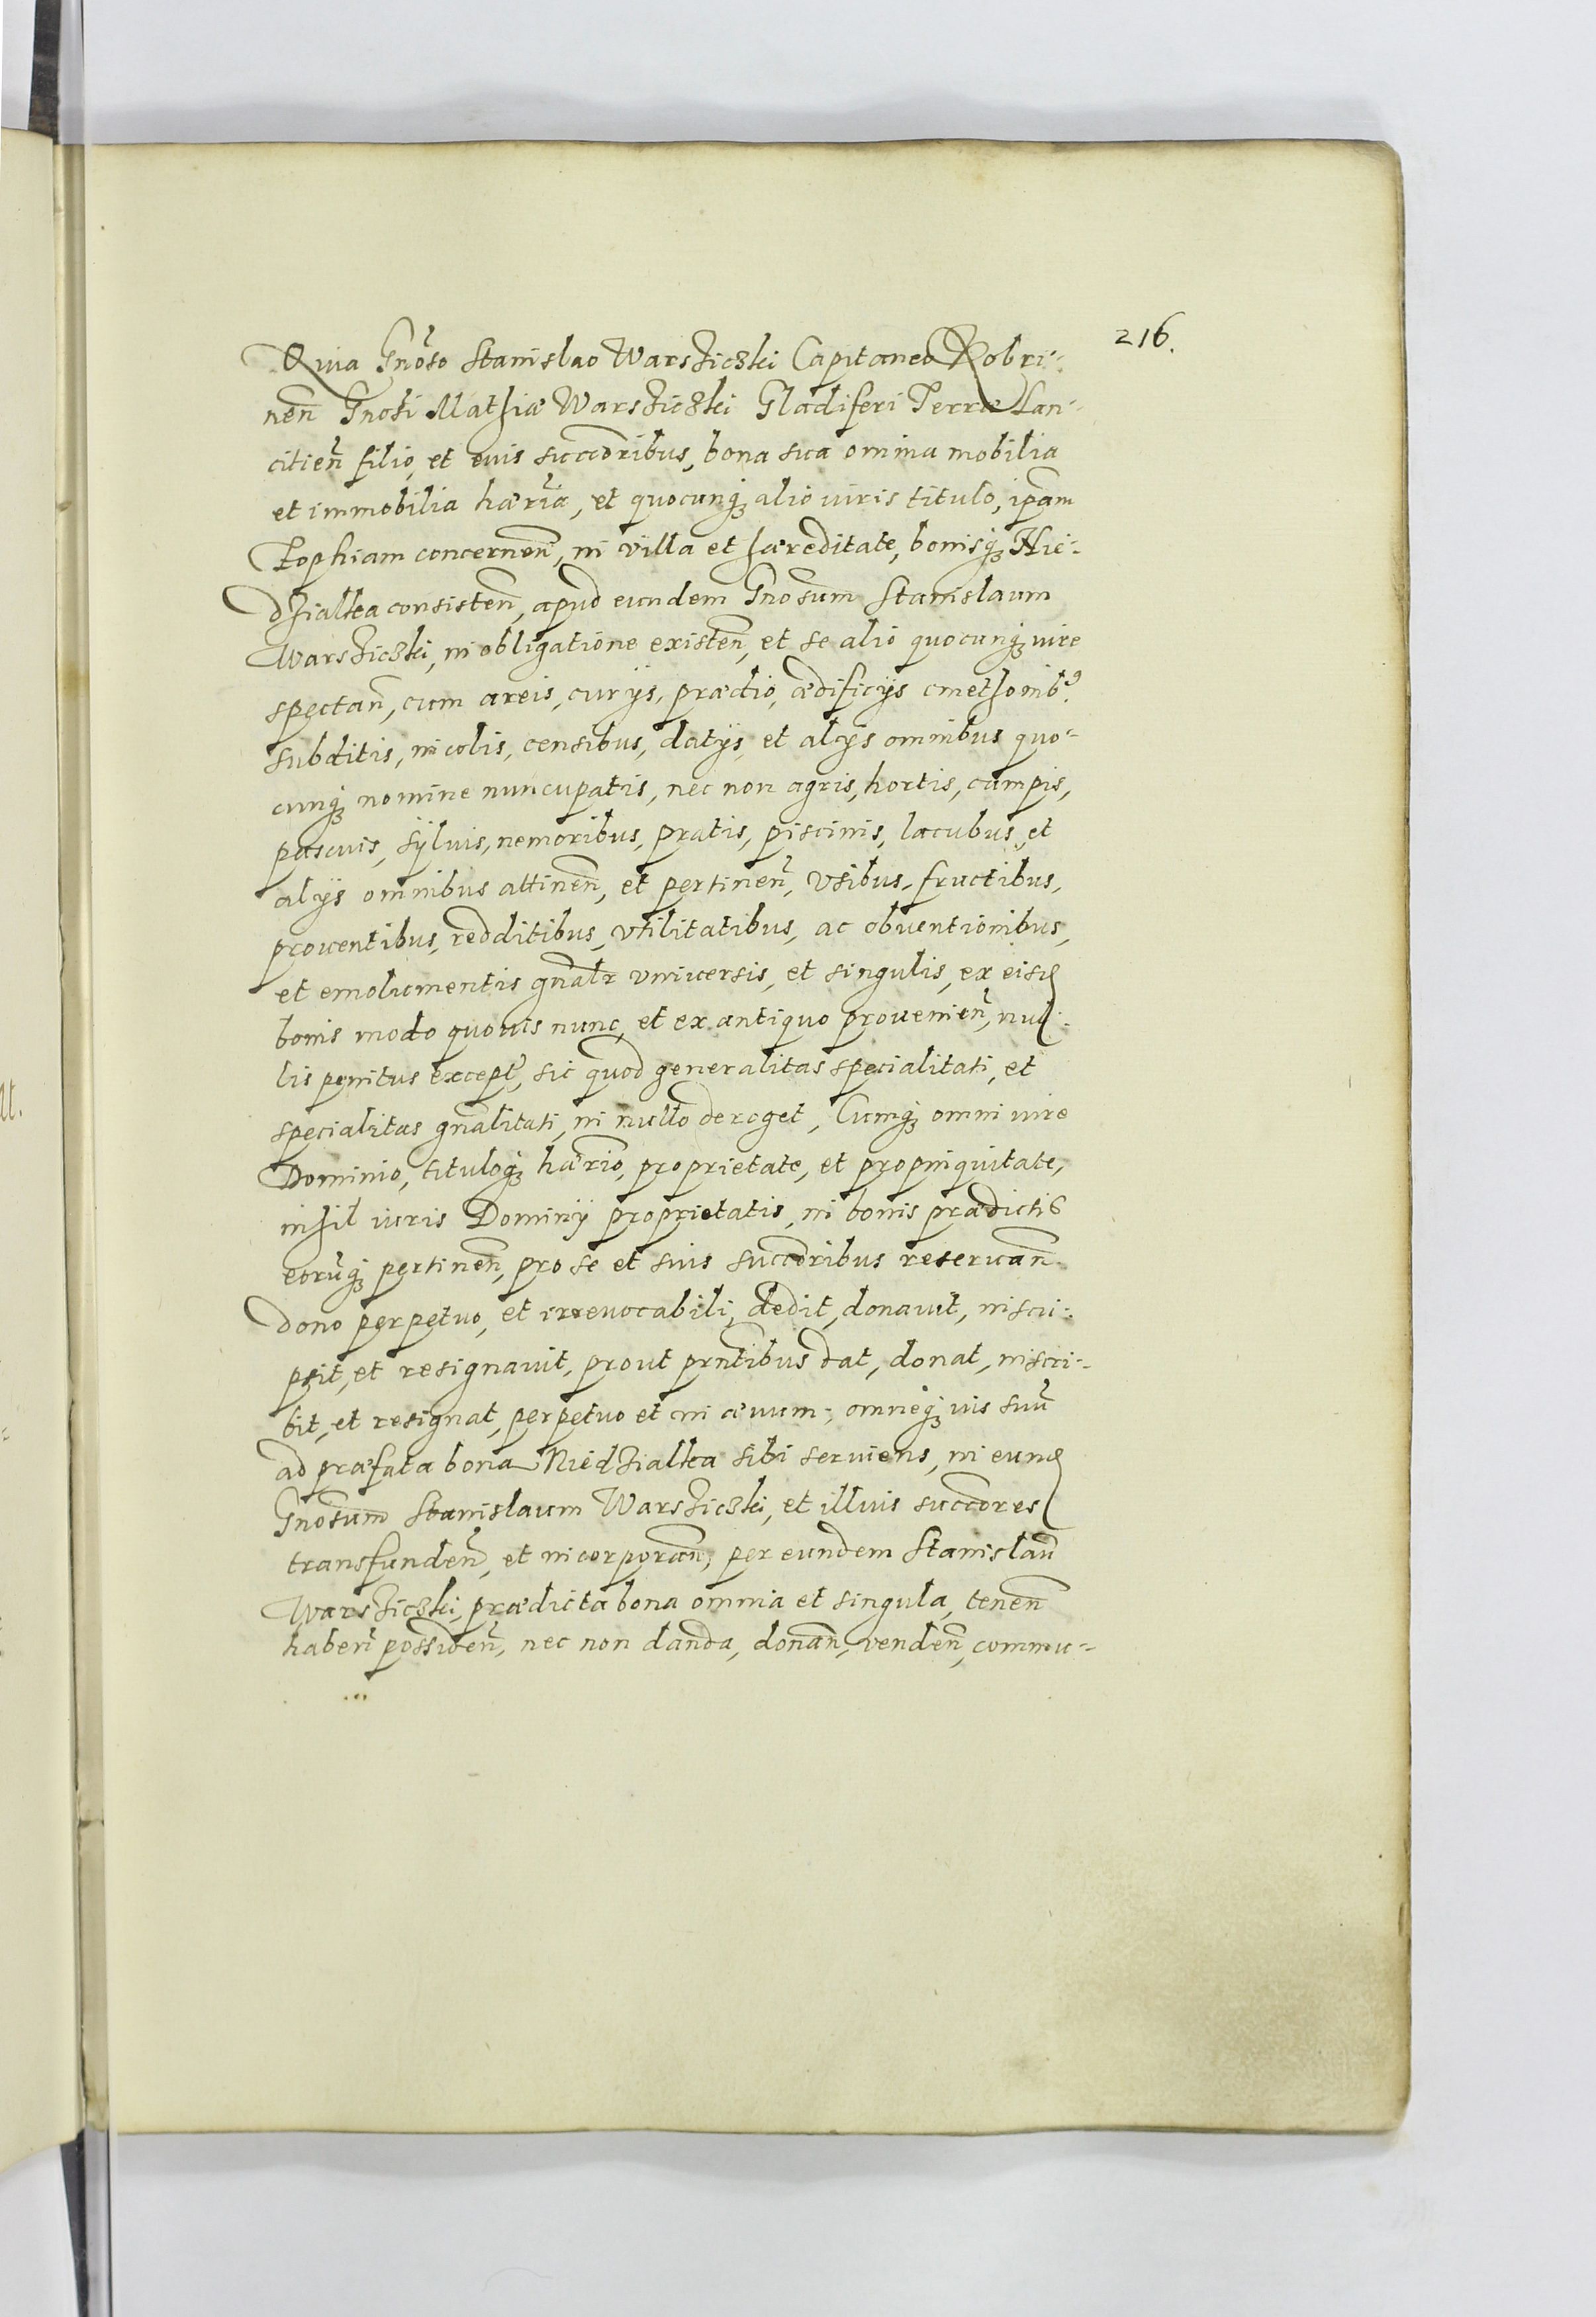 216.
Quia Gnoso Stanislao Warsziczki Capitaneo Kobri-
nen Gnosi Mathiæ Warsziczki Gladiferi Terræ Lan-
citien filio, et euis succoribus, bona sua omnia mobilia
et immobilia hæria, et quocunq alio iuris titulo, ipam
Zophiam concernen, in villa et hæreditate, bonisq Nie-
dzialka consisten, apud eundem Gnosum Stanislaum
Warsziczki, in obligatione existen, et se alio quocunq iure
spectan, cum areis, curÿs, prædio, ædificÿs cmethonib9
subditis, incolis, censibus, datÿs, et alÿs omnibus quo-
cunq nomine nuncupatis, nec non agris, hortis, campis,
pascuis, sÿluis, nemoribus, pratis, piscinis, lacubus, et
alÿs omnibus attinen, et pertinen, Vsibus, fructibus,
prouentibus, redditibus, vtilitatibus, ac obuentionibus,
et emolumentis gnalr vniuersis, et singulis, ex eisd
bonis modo quouis nunc, et ex antiquo prouenien, nul-
lis penitus except, sic quod generalitas specialitati, et
specialitas gnalitati, in nullo deroget, Cumq omni iure
Dominio, tituloq hærio, proprietate, et propinquitate,
nihil iuris Dominÿ proprietatis, in bonis prædictis
eorumq pertinen, pro se et suis succoribus reseruan
dono perpetuo, et irreuocabili, dedit, donauit, inscri-
psit, et resignauit, prout prntibus dat, donat, inscri-
bit, et resignat, perpetuo et in æuum, omneq ius suu
ad præfata bona Niedzialka sibi seruiens, in eund
Gnosum Stanislaum Warsziczki, et illius succores
transfunden, et incorporan, per eundem Stanislau
Warsziczki, prædicta bona omnia et singula, tenen
haben possiden, nec non danda, donan, venden, commu-